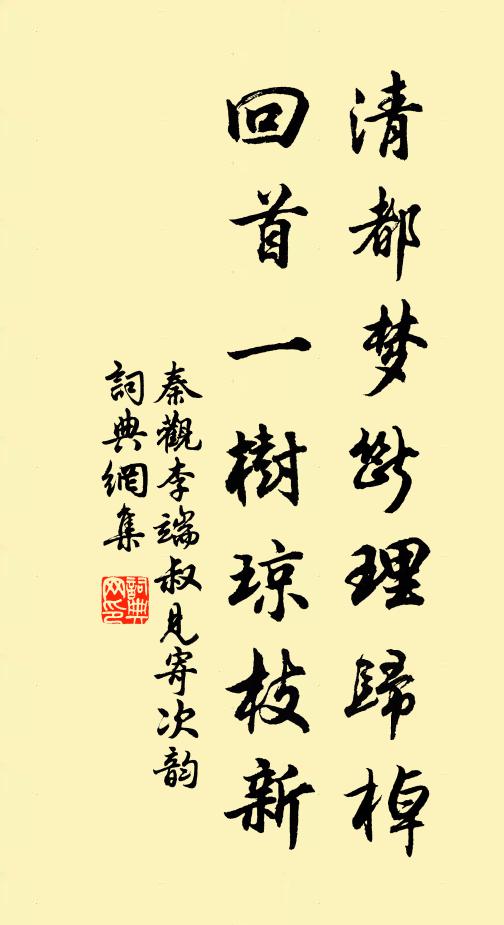 清都梦断理歸棹
回首一樹琼枝新
秦觀李端叔見寄次韵
詞典網集
詞典网印